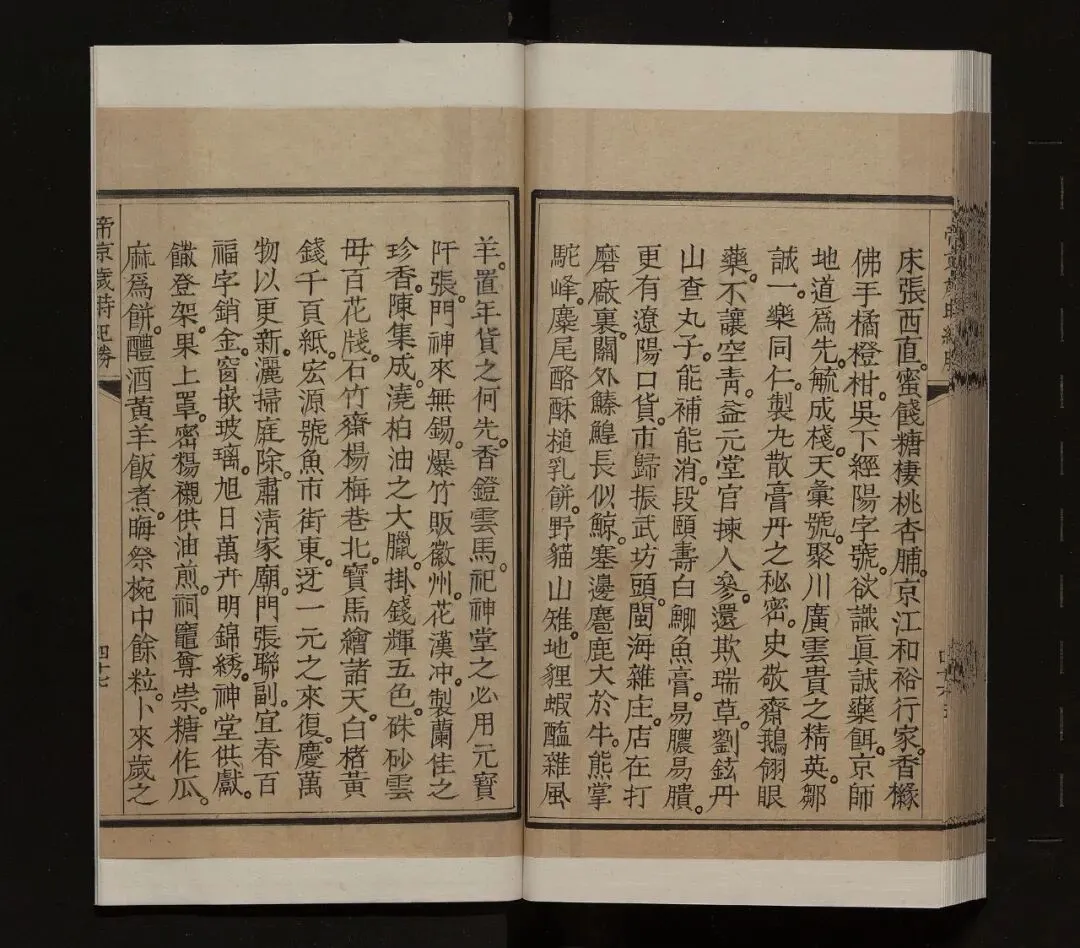 床張西直。蜜餞糖棲桃杏脯。京江和裕行家。香櫞
佛手橘橙柑。吳下經陽字號。欲識真誠藥餌。京師
地道爲先。毓成棧。天彙號。聚川廣雲貴之精英。鄒
誠一。樂同仁。製丸散膏丹之秘密。史敬齋鵝翎眼
藥。不讓空青。益元堂官揀人參。還欺瑞草。劉鉉丹
山查丸子。能補能消。段頤壽白鯽魚膏。易膿易膭。
更有遼陽口貨。市歸振武坊頭。閩海雜庄。店在打
磨廠裏。關外鱘鰉長似鯨。塞邊麅鹿大於牛。熊掌
駝峰。麋尾酪酥槌乳餅。野貓山雉。地狸蝦醢雜風
羊。置年貨之何先。香鐙雲馬。祀神堂之必用元寶
阡張。門神來無錫。爆竹販徽州。花漢冲。製蘭佳之
珍香。陳集成。澆柏油之大臘。掛錢輝五色。硃砂雲
毋百花牋。石竹齋楊梅巷北。寶馬繪諸天。白楮黃
錢千頁紙。宏源號魚市街東。迓一元之來復。慶萬
物以更新。灑掃庭除。肅清家廟。門張聯副。宜春百
福字銷金。窗嵌玻璃。旭日萬卉明錦綉。神堂供獻。
饊登架。果上罩。密楊襯供油煎。祠竈尊崇。糖作瓜。
麻爲餅。醴酒黃羊飯煮。晦祭椀中餘粒。卜來歲之
帝京歲時紀勝
四十七